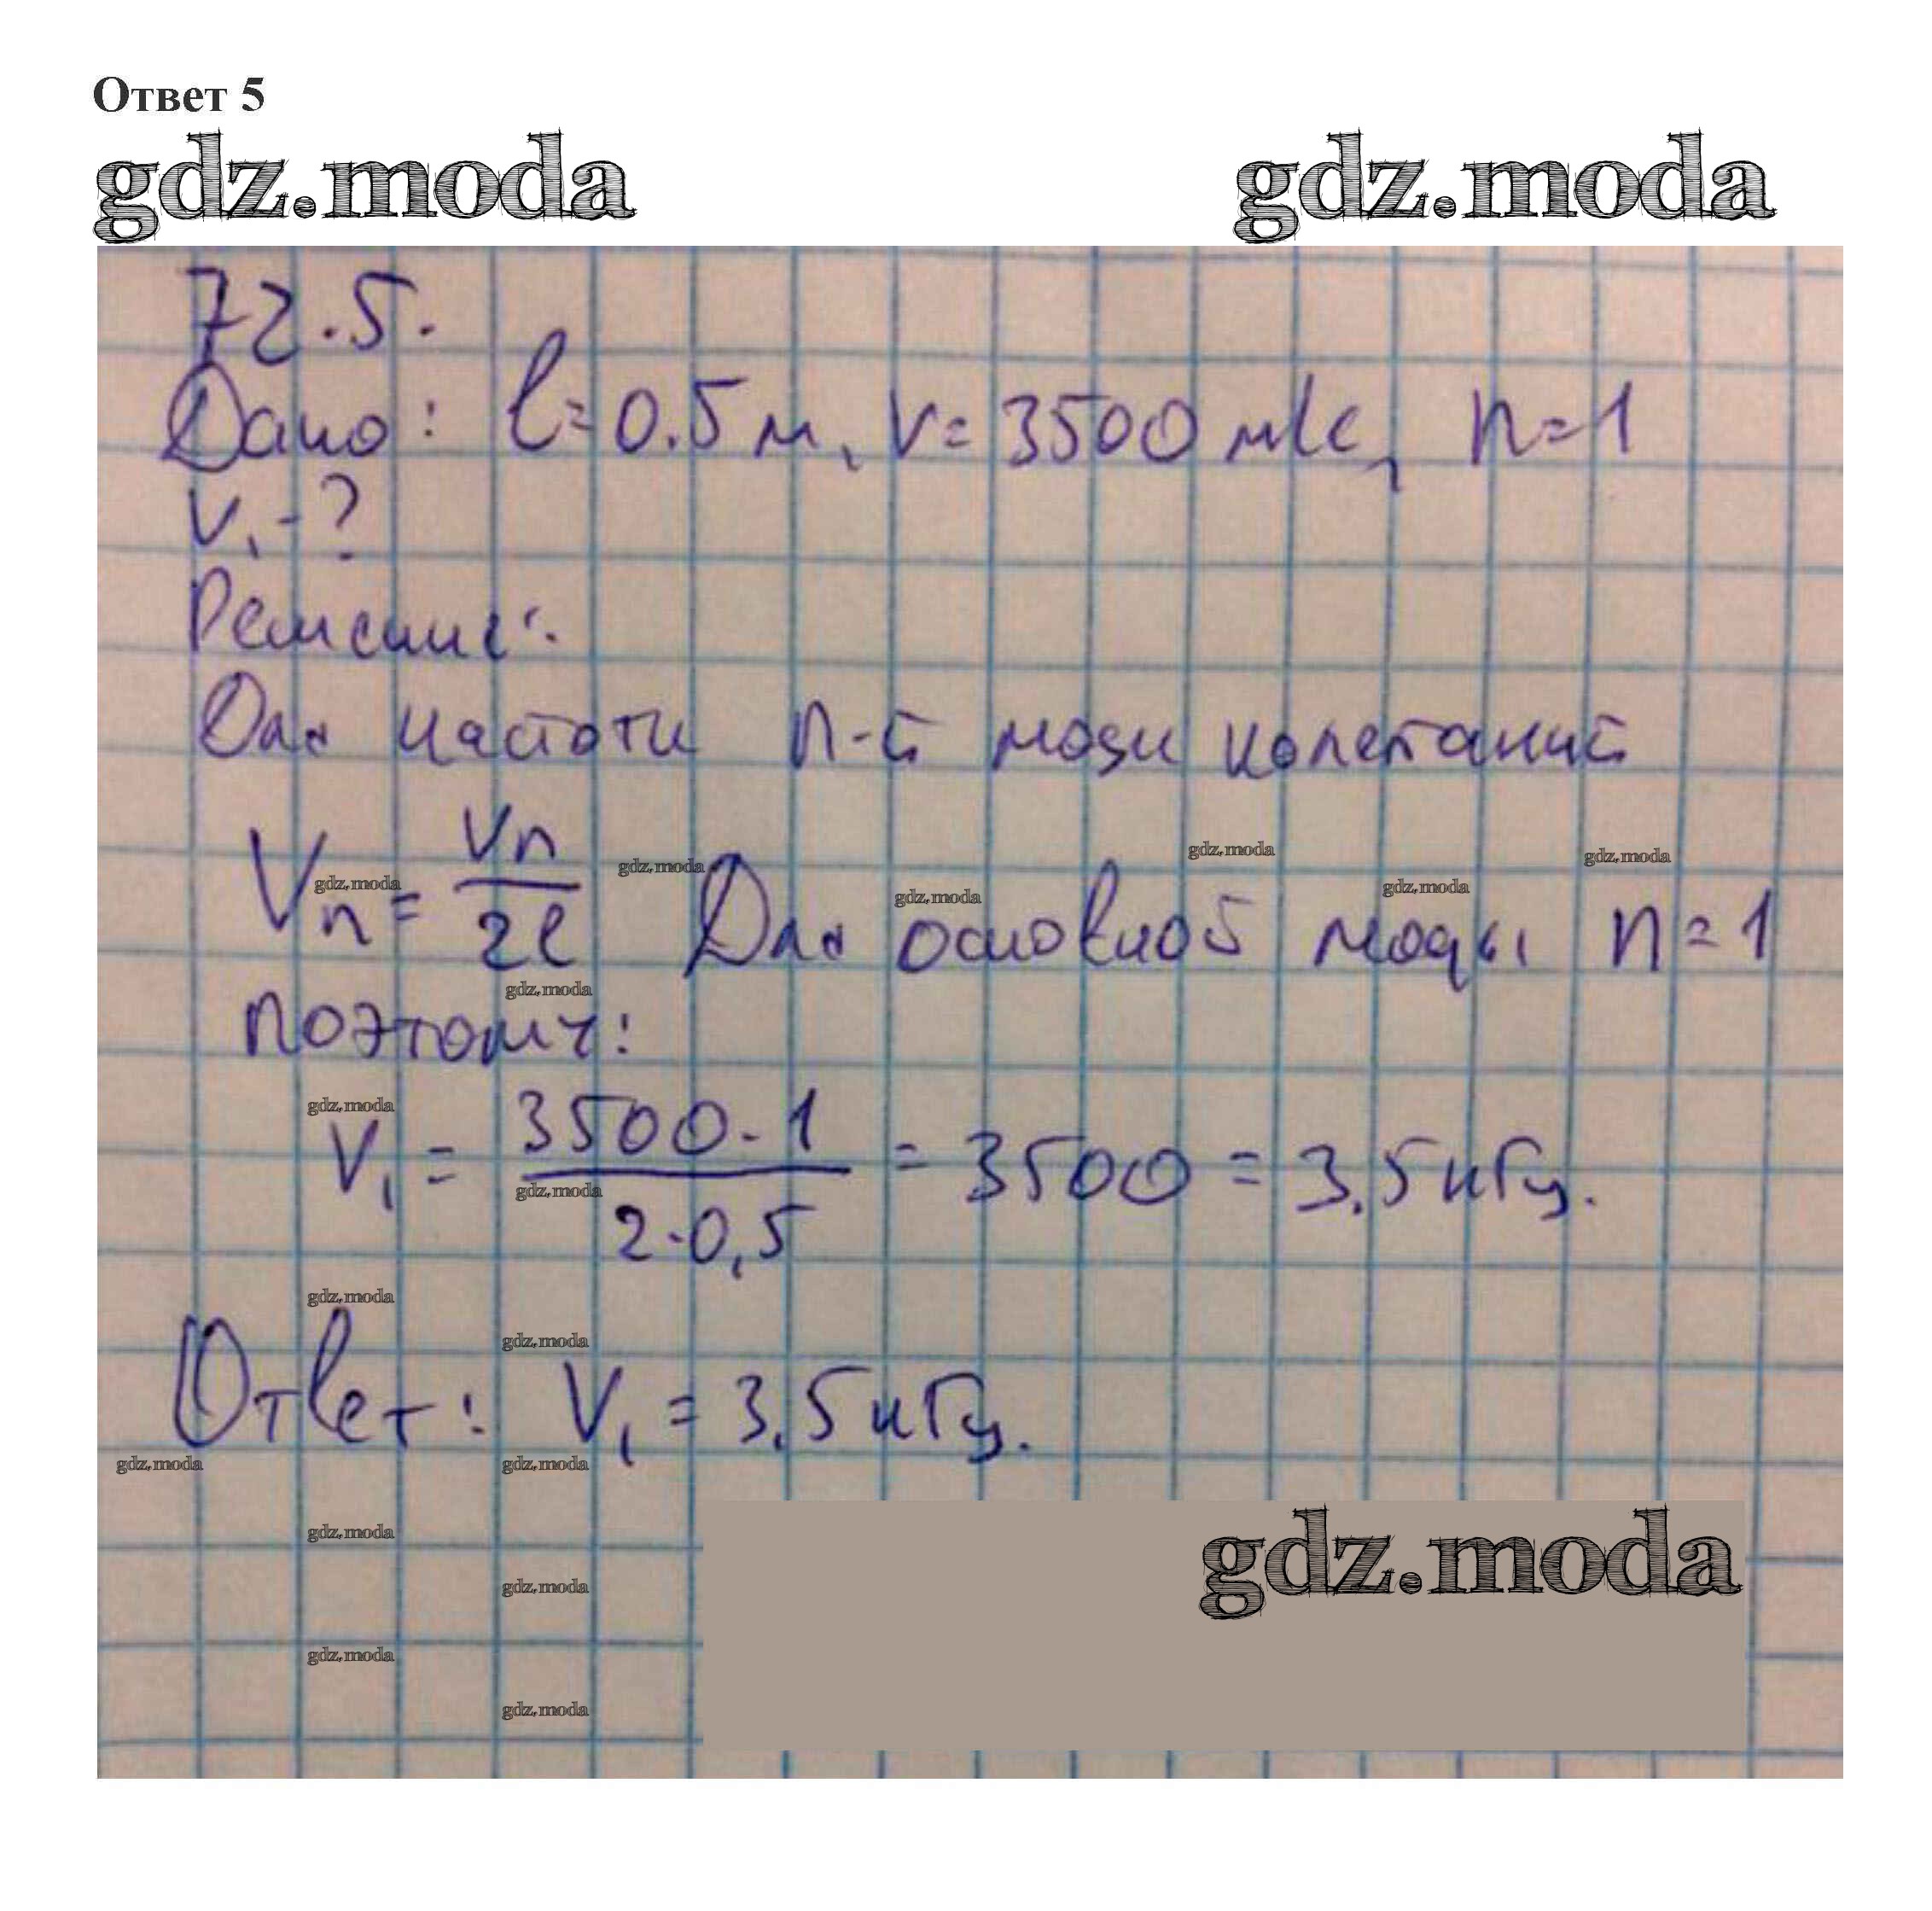 Ответ 5
gdz.moda gdz.moda
72.5.
Дано: l=0.5м, v=3500 м/с, n=1
V₁-?
Решение:
Для частоты n-й моды колебаний
gdz.moda gdz.moda
gdz.moda gdz.moda gdz.moda gdz.moda
Vₙ = vn/2l Для основной моды n=1
gdz.moda
поэтому:
gdz.moda
V₁ = 3500·1/2·0,5 = 3500 = 3,5кГц.
gdz.moda
gdz.moda
gdz.moda
Ответ: V₁ = 3,5кГц.
gdz.moda gdz.moda
gdz.moda
gdz.moda
gdz.moda
gdz.moda
gdz.moda